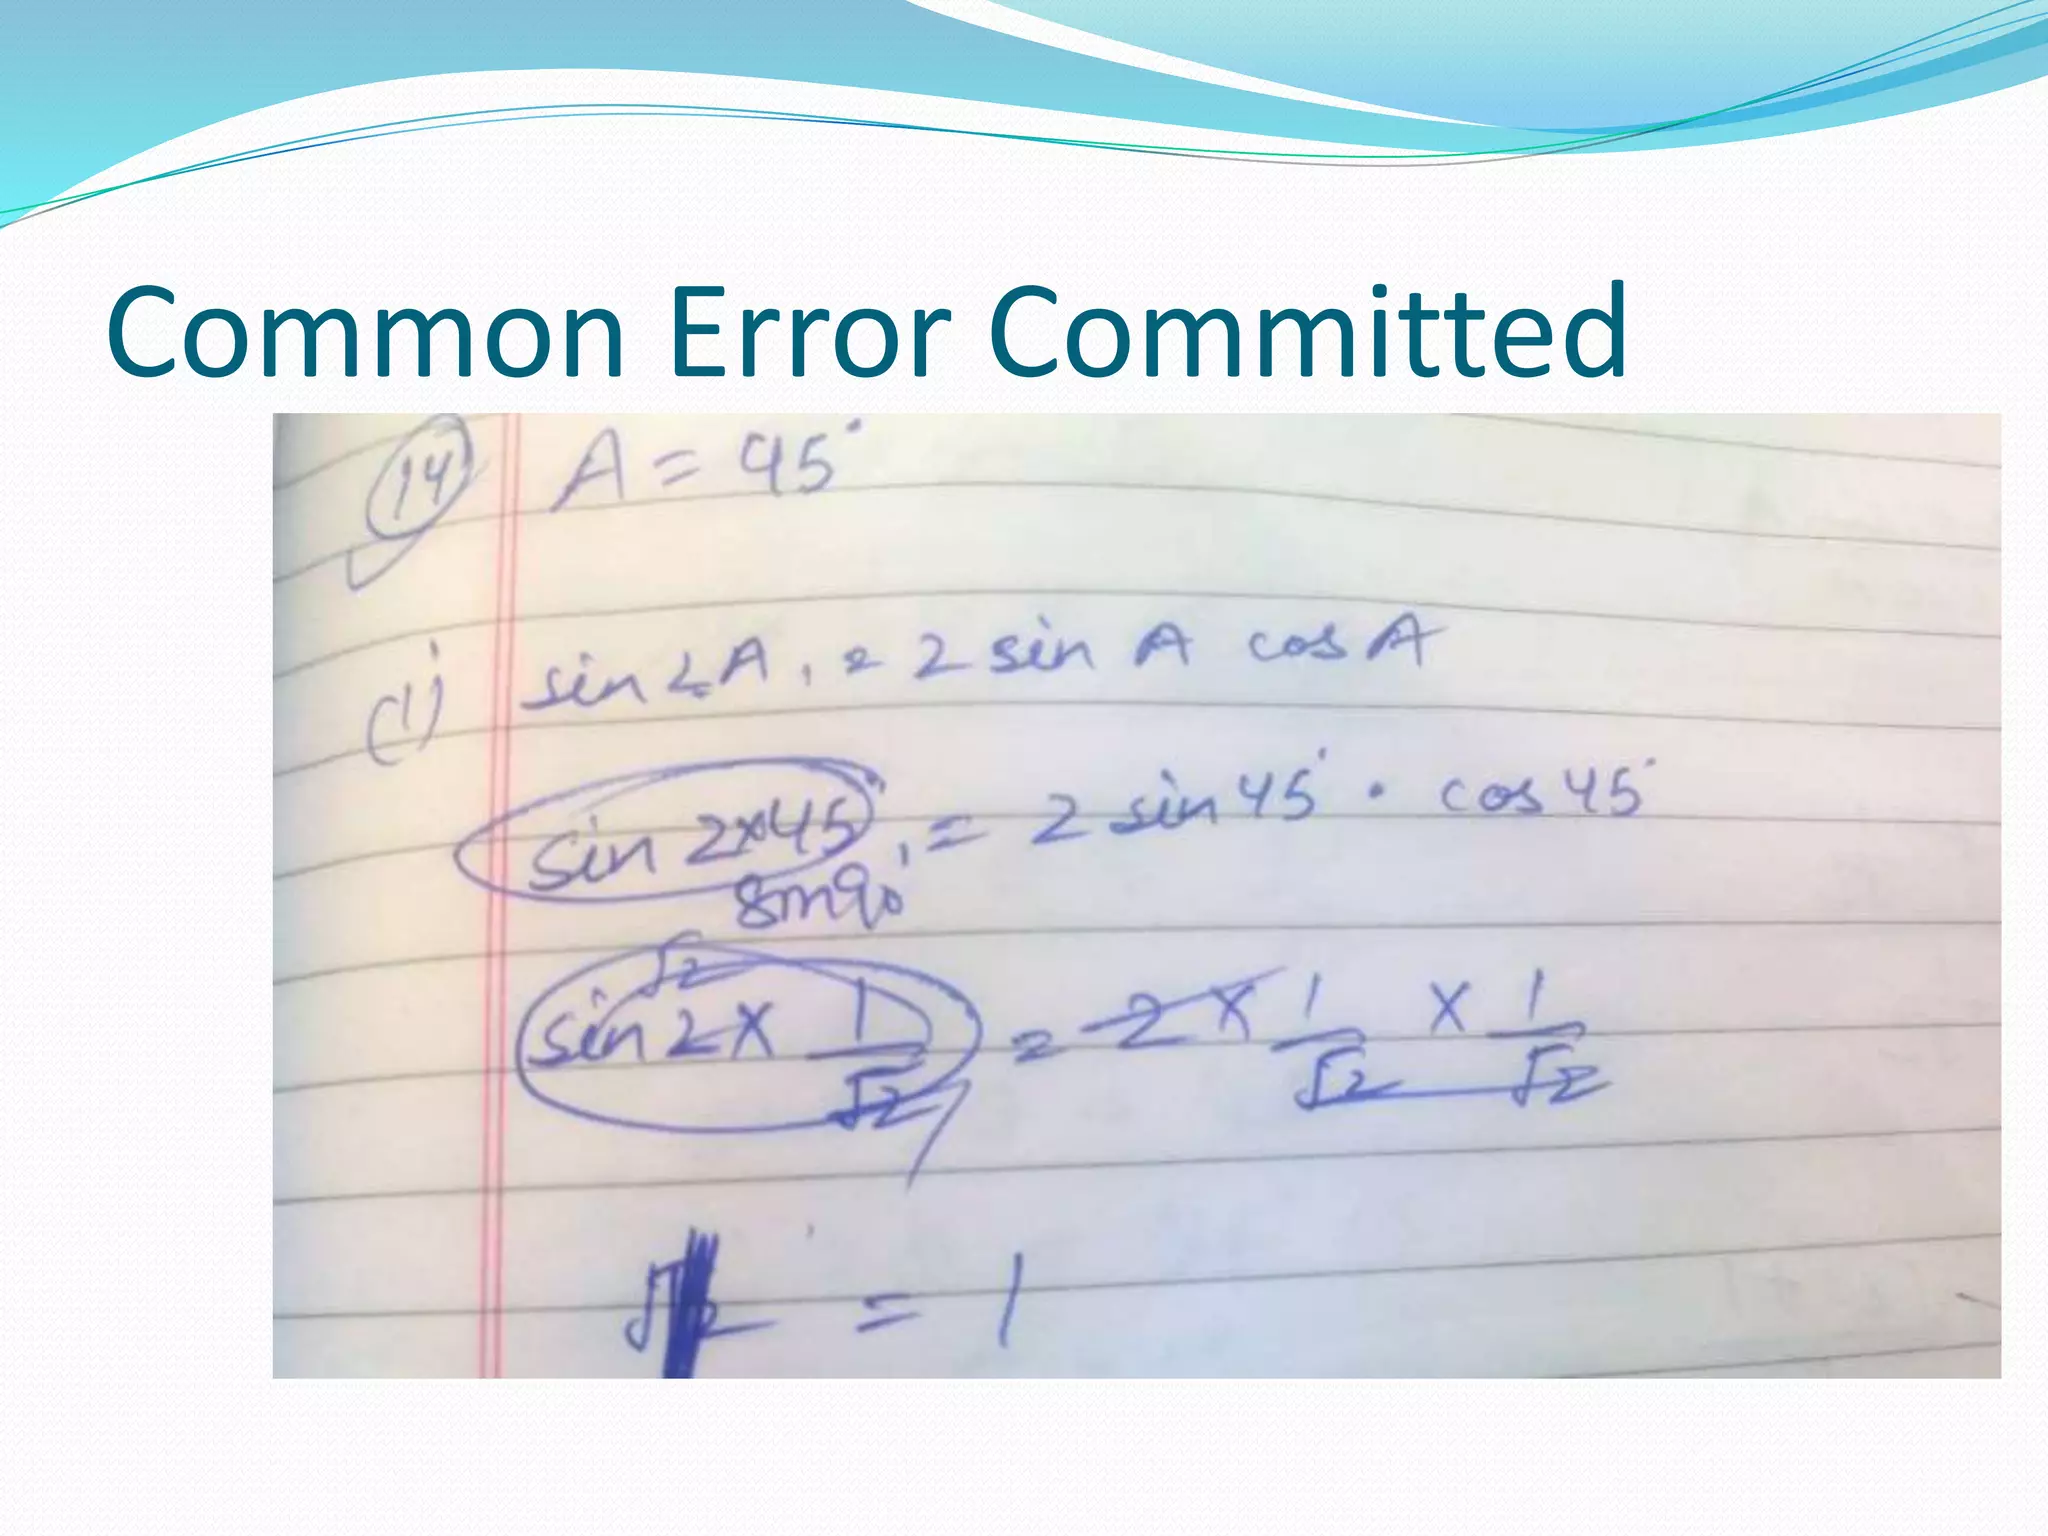 Common Error Committed
14 A = 45°
(i) sin 2A = 2 sin A cos A
sin 2×45° = 2 sin 45° · cos 45°
sin 90°
√2
sin 2 × 1/√2 = 2 × 1/√2 × 1/√2
= 1